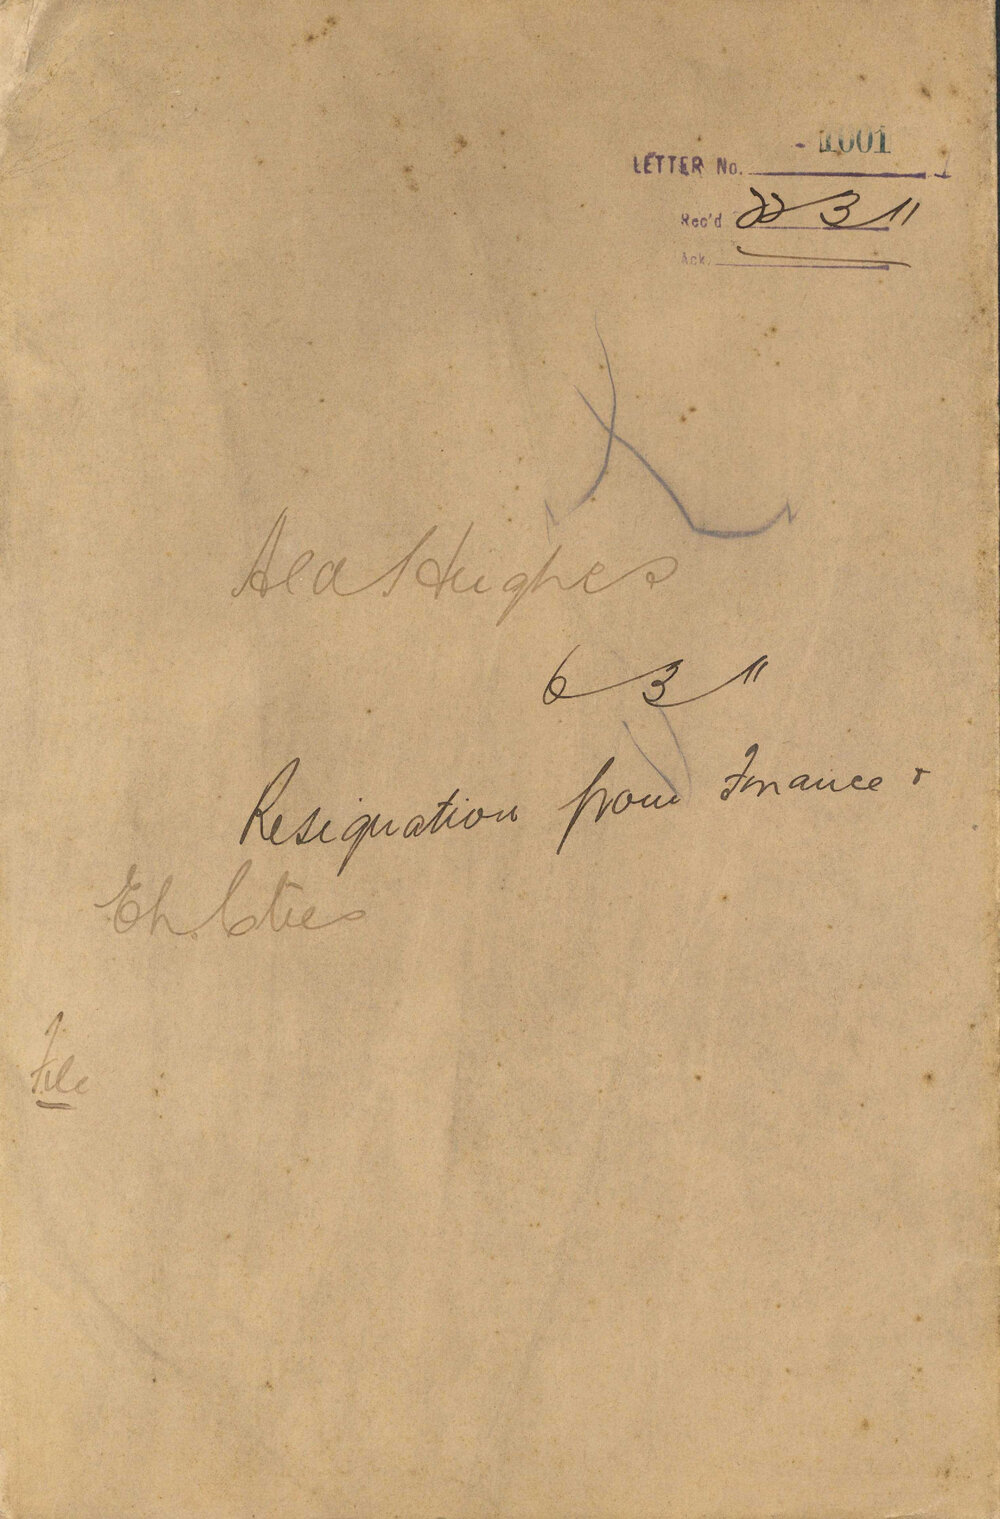 1001
LETTER No.
Rec'd 22 3 11
Ack.
Ald Hughes
6 3 11
Resignation from Finance &
Eh. Cttees
File